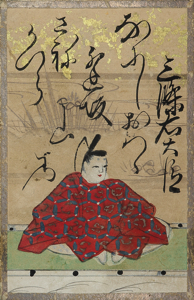 三條右大臣
なにしおはゝ
逢坂
山の
さね
かつら